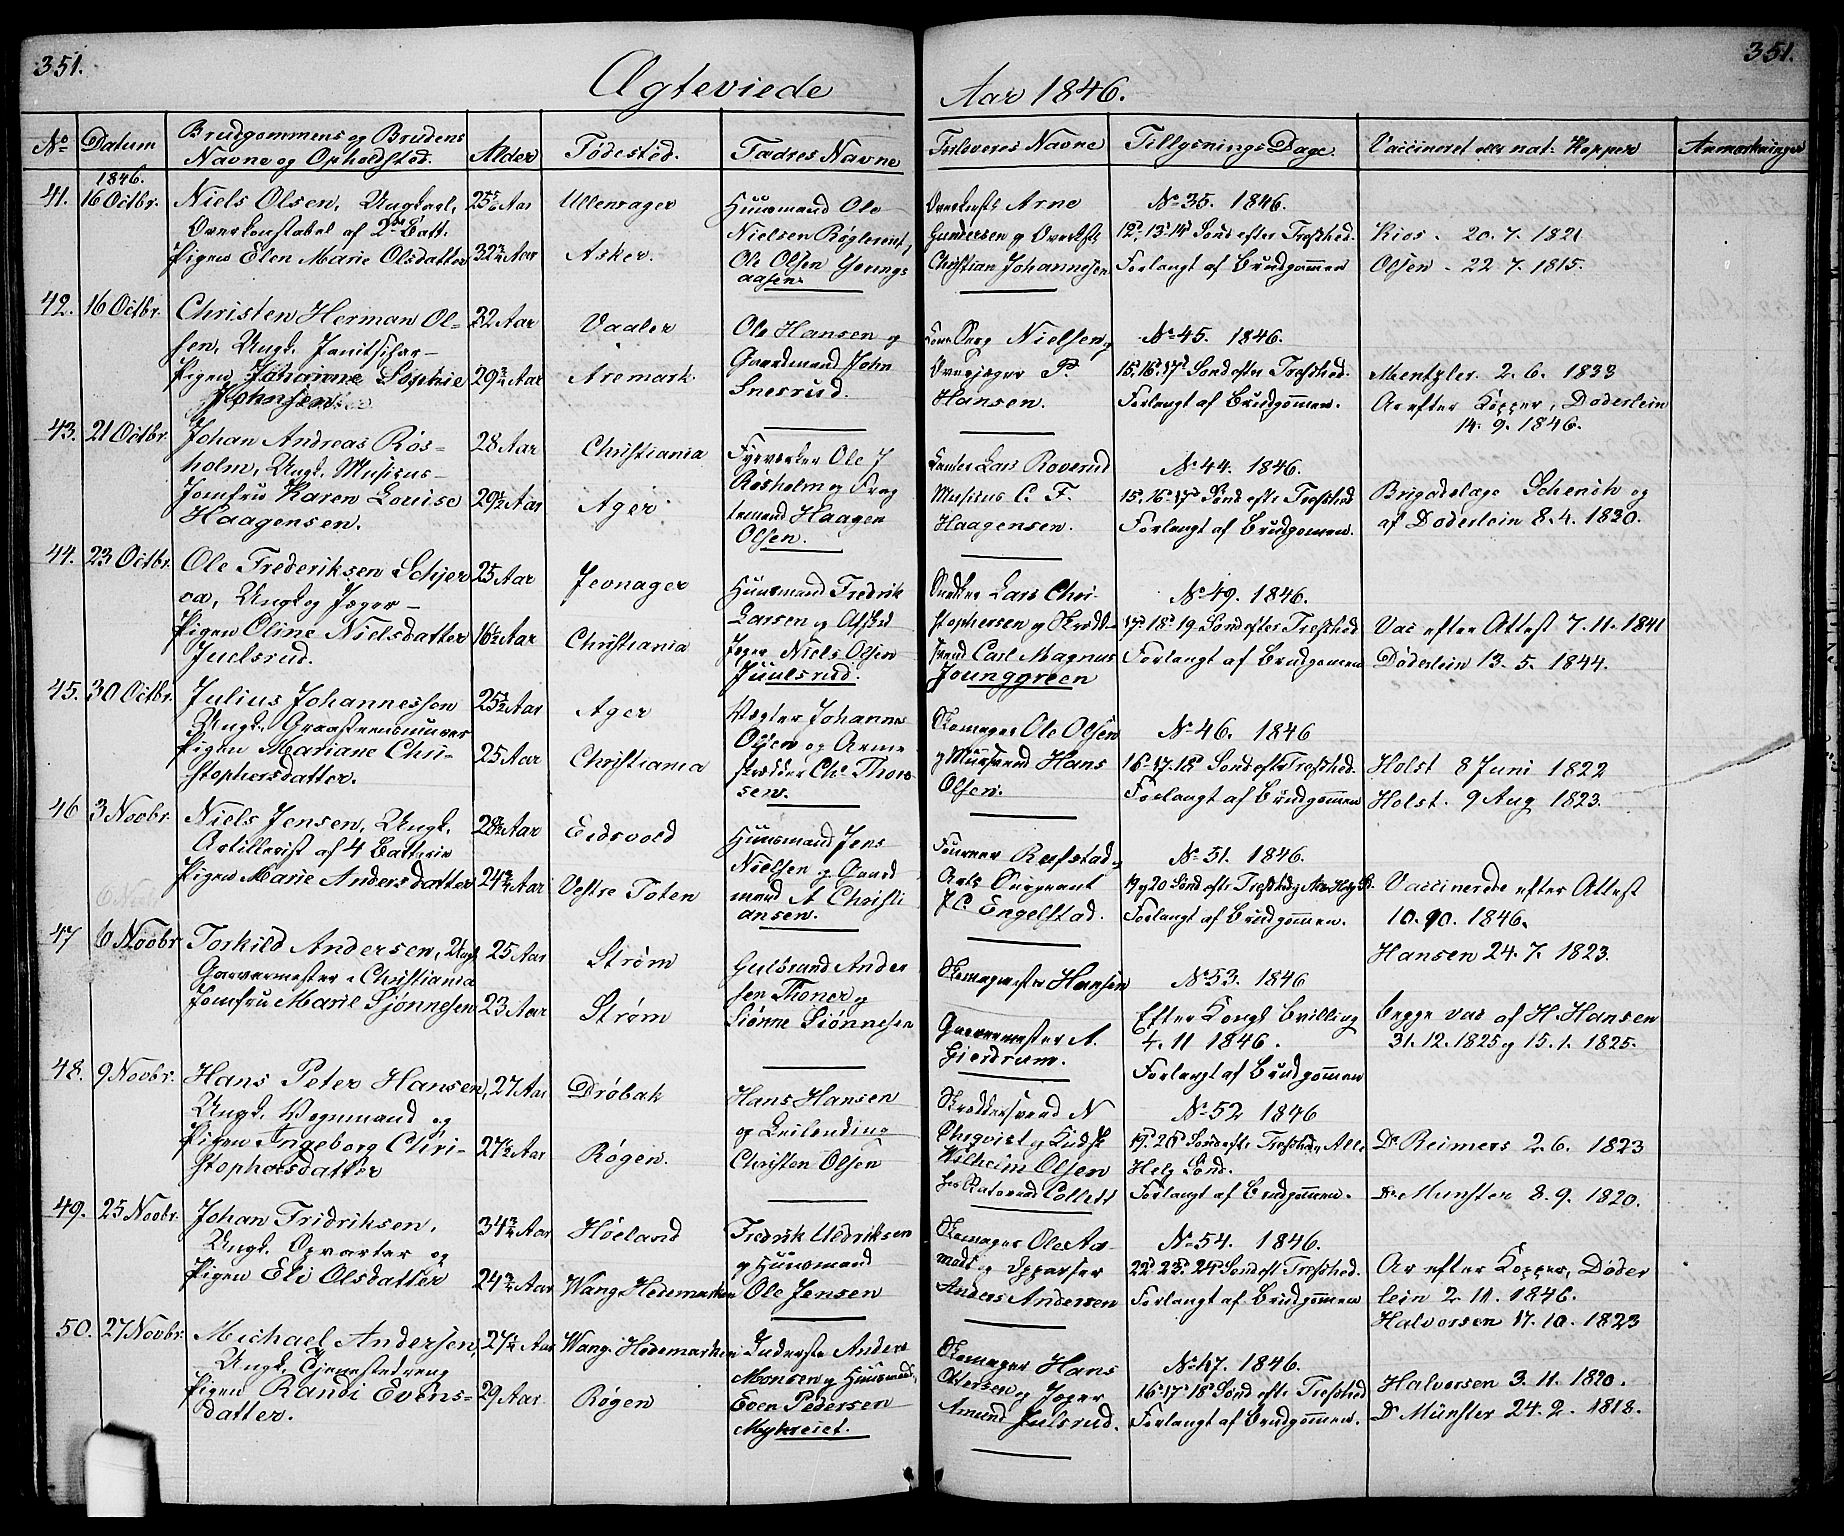 351.
Ægteviede
Aar 1846.
351.
No Datum Brudgommens og Brudens Navne og Opholdsted. Alder Fødested. Fædres Navne Forloveres Navne Tillysnings Dage. Vaccineret eller nat. Kopper Anmærkninger
1846.
41. 16 Octbr. Niels Olsen, Ungkarl, 25 Aar Ullensager
Overkonstabel af 2den Batt.
Pigen Elen Marie Olsdatter 32 Aar Asker.
Huusmand Ole
Nielsen Røgleren
Ole Olsen
aasen
Overkonst. Arne
Gundersen og Overkst.
Christian Johannesen
No 35. 1846.
12te, 13, 14de Sønd efter Trefoldhed.
Forlangt af Brudgommen
Kios. 20. 7. 1821
Olsen. 22. 7. 1815.
42. 16 Octbr. Christen Herman Ol-
sen, Ungk. Janitshar-
Pigen Johanne Sophie
Johnsen
22 Aar Vaaler
29 3/4 Aar Aremark
Ole Hansen og
Gaardmand John
Snesrud.
Berg Nielsen og
Overjæger P.
Hansen.
No 45. 1846.
15. 16. 17d Sønd efter Trefoldhed.
Forlangt af Brudgommen.
Mentzler 2. 6. 1833
Ar efter Kopper, Døderlein
14. 9. 1846.
43. 21 Octbr. Johan Andreas Røs-
holm, Ungk. Musicus-
Jomfru Karen Louise
Haagensen.
28 Aar Christiania
29 1/2 Aar Ager
Fyrverker Ole J
Røsholm og Frag
temand Haagen
Olsen.
Lars Roverud
Musicus C. F.
Haagensen.
No 44. 1846.
15. 16. 17d Sønd efter Trefoldhed
Forlangt af Brudgommen.
Brigadelæge Schensh og
af Døderlein 8. 4. 1830.
44. 23 Octbr. Ole Frederiksen Schjer
va, Ungk og Jæger-
Pigen Oline Nielsdatter
Juelsrud.
25 Aar Jevnager
16 1/2 Aar Christiania
Huusmand Fredrik
Larsen og Afsked
Jæger Niels Olsen
Juulsrud.
Snedker Lars Chri-
stophersen og Skræd-
svend Carl Magnus
Jounggreen
No 49. 1846.
17d 18d 19. Sønd efter Trefoldhed
Forlangt af Brudgommen
Vac efter Attest 7. 11. 1841
Døderlein 13. 5. 1844.
45. 30 Octbr. Julius Johannessen
Ungk. Graasteensmurer
Pigen Mariane Chri-
stophersdatter.
25 1/2 Aar Ager
25 Aar Christiania
Vægter Johannes
Olsen og Arme-
skrædder Chr. Thor-
sen.
Skomager Ole Olsen
og Muursvend Hans
Olsen.
No 46. 1846
16. 17. 18d Sønd efter Trefoldhed.
Forlangt af Brudgommen
Holst 8 Juni 1822
Holst. 9 Aug 1823.
46 3 Novbr. Niels Jensen, Ungk.
Artillerist af 4 Batterie
Pigen Marie Andersdatter
28 Aar Eidsvold
24 3/4 Aar Vestre Toten
Huusmand Jens
Nielsen og Gaard
mand A Christi
ansen.
Foureer Rufstad og
Arts Sergeant
J. C. Engelstad.
No 51. 1846.
19 og 20 Sønd efter Trefoldhed
Forlangt af Brudgommen.
Vaccinerede efter Attest
10. 10. 1846.
47 6 Novbr. Torkild Andersen, Ungk
Garvermester i Christiania
Jomfru Marie Sjønnesen
25 Aar Strøm
23 Aar Strøm
Gulbrand Ander
sen Thoner og
Siønne Siønnesen
Skomagermester Hansen
Garvermester A.
Gierdrum.
No 53. 1846
Efter Kongl Bevilling
4. 11 1846.
Forlangt af Brudgommen
Hansen 24. 7. 1823.
begge vac af H. Hansen
31. 12. 1825 og 15. 1. 1825.
48. 9 Novbr. Hans Peter Hansen,
Ungk. Vognmand og
Pigen Ingeborg Chri-
stophersdatter
27 Aar Drøbak
27 1/2 Aar Røgen.
Hans Hansen
og Leilending
Christen Olsen
Skræddersvend N
Ehrqvist og Kudsk
Wilhelm Olsen
hos Statsraad Collett
No 52 1846
19. 20d Sønd efter Trefoldhed, Alle
Helg Sønd.
Forlangt af Brudgommen.
Dr Reimers 2. 6. 1823
Dr Munster 8. 9. 1820.
49. 25 Novbr. Johan Fridriksen,
Ungk. Opvarter og
Pigen Eli Olsdatter
34 3/4 Aar Høeland
24 3/4 Aar Wang Hedemarken
Fredrik Uldriksen
og Huusmand
Ole Jensen
Skomager Ole Aa-
modt og Oppasser
Anders Andersen
No 54. 1846.
22d 23d 24 Sønd eft Trefoldhed.
Forlangt af Brudgommen
Ar efter Kopper, Døder
lein 2. 11. 1846.
Halvorsen 17. 10. 1823
50. 27 Novbr. Michael Andersen,
Ungk. Tjenestedreng
Pigen Randi Evens-
datter.
27 1/2 Aar Wang. Hedemarken
29 Aar Røgen
Inderste Anders
Monsen og Huusmand
Even Pedersen
Myhreiet.
Skomager Hans
Ottersen og Jæger
Amund Julsrud.
No 47. 1846.
16. 17d 18d Sønd efter Trefoldhed
Forlangt af Brudgommen.
Halvorsen 3. 11. 1820.
Dr Münster 24. 2. 1818.